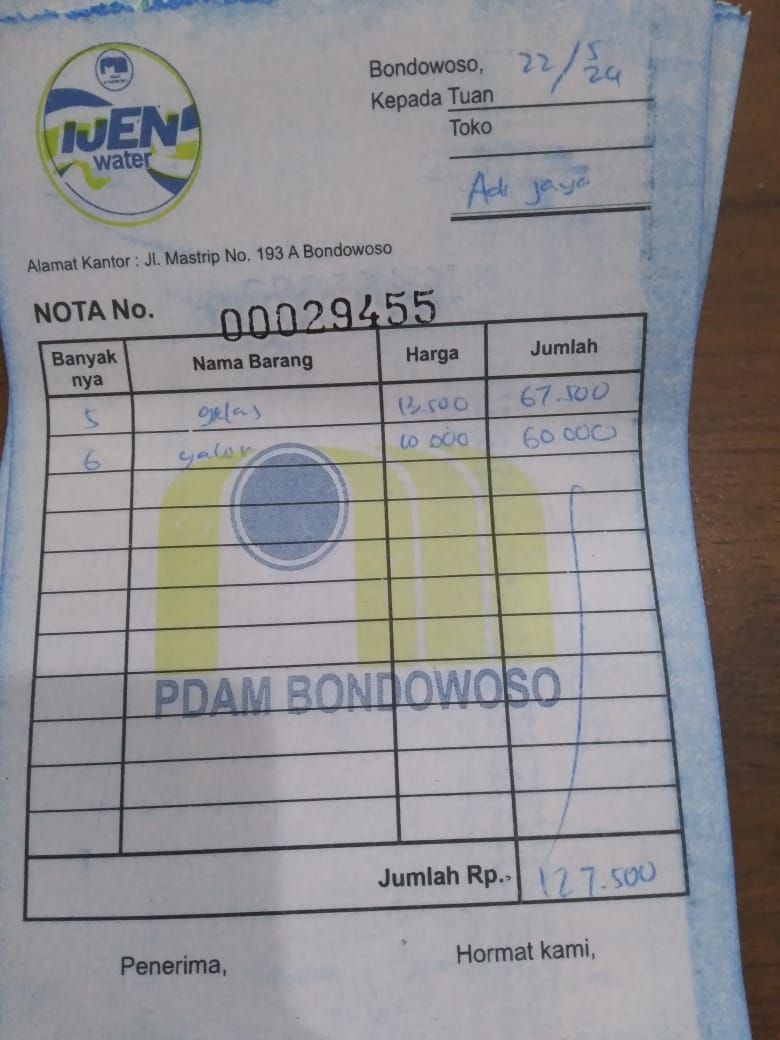 IJEN
water
Bondowoso, 22/5/24
Kepada Tuan
Toko
Adi jaya
Alamat Kantor : Jl. Mastrip No. 193 A Bondowoso
NOTA No. 00029455
Banyak nya Nama Barang Harga Jumlah
5 gelas 13.500 67.500
6 galon 10 000 60 000
PDAM BONDOWOSO
Jumlah Rp. 127.500
Penerima, Hormat kami,